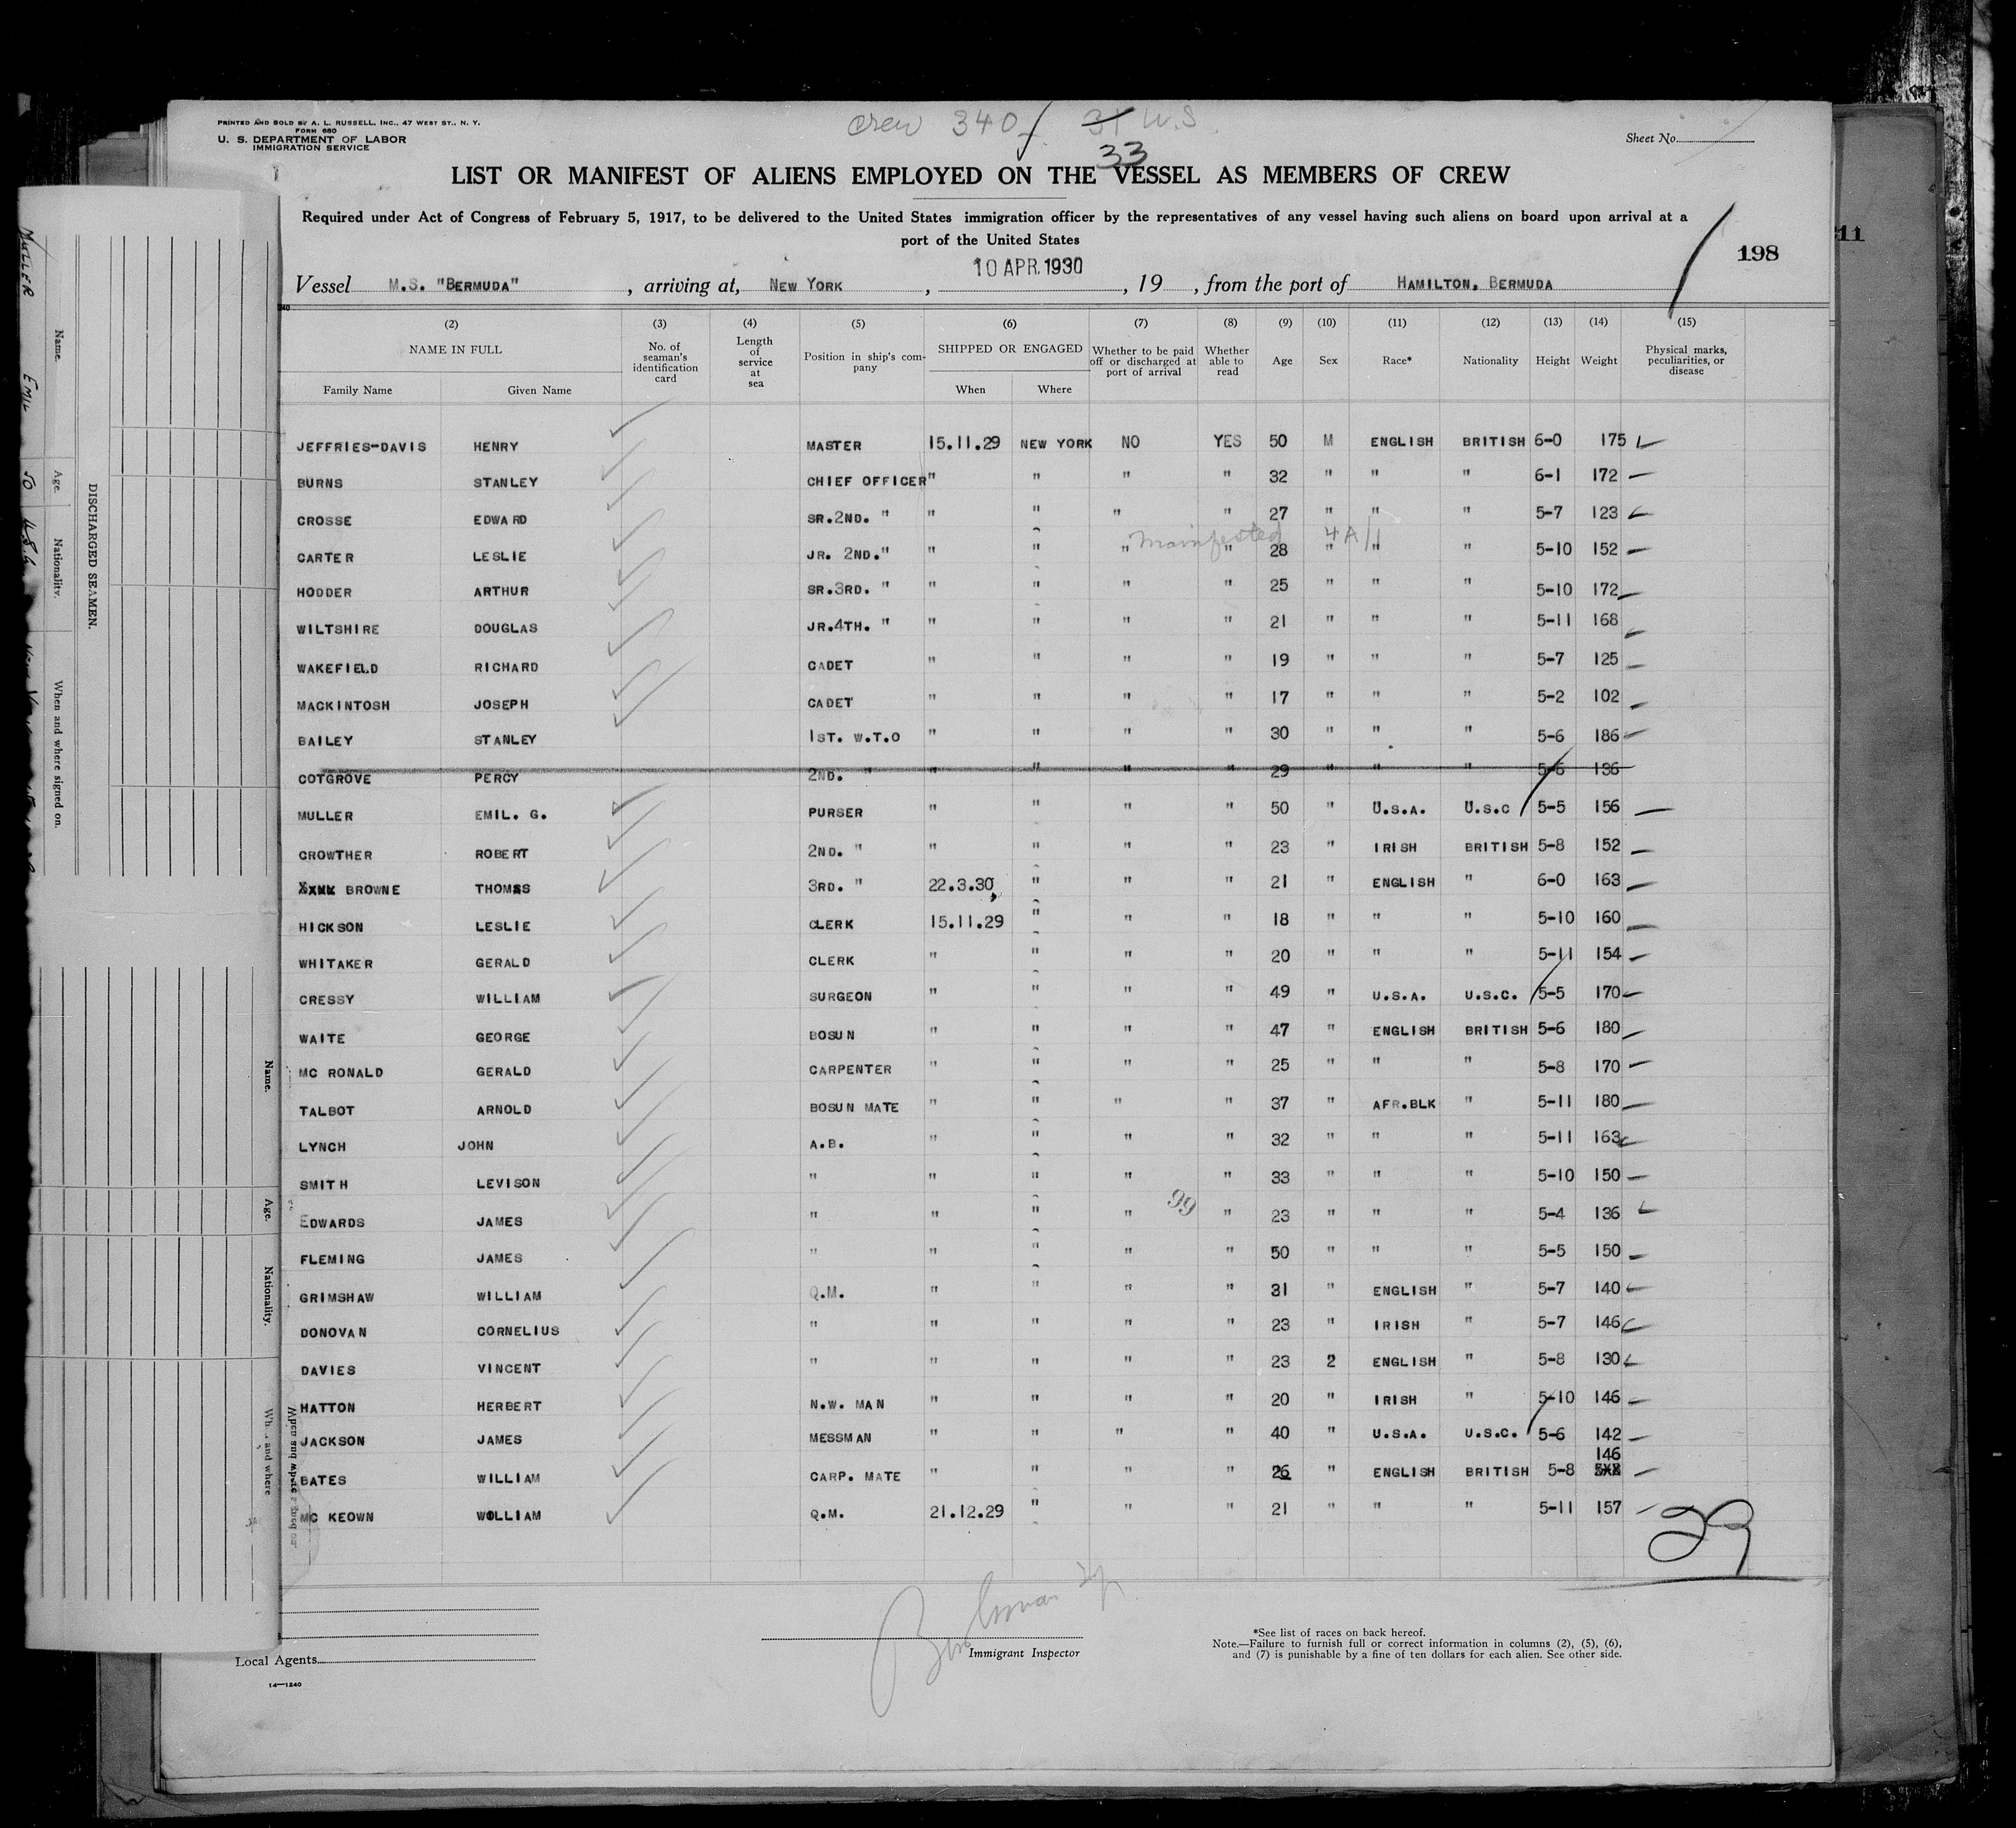 PRINTED AND SOLD BY A. L. RUSSELL, INC., 47 WEST ST., N. Y.
FORM 680
U. S. DEPARTMENT OF LABOR
IMMIGRATION SERVICE
crew 340 31 U.S.
33
Sheet No.
LIST OR MANIFEST OF ALIENS EMPLOYED ON THE VESSEL AS MEMBERS OF CREW
Required under Act of Congress of February 5, 1917, to be delivered to the United States immigration officer by the representatives of any vessel having such aliens on board upon arrival at a
port of the United States
198
11
10 APR. 1930
Vessel M.S. "BERMUDA", arriving at, NEW YORK, , 19 , from the port of HAMILTON, BERMUDA
(2) (3) (4) (5) (6) (7) (8) (9) (10) (11) (12) (13) (14) (15)
NAME IN FULL
Family Name Given Name
No. of seaman's identification card
Length of service at sea
Position in ship's company
SHIPPED OR ENGAGED
When Where
Whether to be paid off or discharged at port of arrival
Whether able to read
Age Sex Race* Nationality Height Weight
Physical marks, peculiarities, or disease
JEFFRIES-DAVIS HENRY MASTER 15.11.29 NEW YORK NO YES 50 M ENGLISH BRITISH 6-0 175
BURNS STANLEY CHIEF OFFICER " " " " 32 " " " 6-1 172
CROSSE EDWARD SR.2ND. " " " " " 27 " " " 5-7 123
Manifested 4A/1
CARTER LESLIE JR. 2ND." " " " " 28 " " " 5-10 152
HODDER ARTHUR SR.3RD. " " " " " 25 " " " 5-10 172
WILTSHIRE DOUGLAS JR.4TH. " " " " " 21 " " " 5-11 168
WAKEFIELD RICHARD CADET " " " " 19 " " " 5-7 125
MACKINTOSH JOSEPH CADET " " " " 17 " " " 5-2 102
BAILEY STANLEY 1ST. W.T.O " " " " 30 " " " 5-6 186
COTGROVE PERCY 2ND. " " " " " 29 " " " 5-6 136
MULLER EMIL. G. PURSER " " " " 50 " U.S.A. U.S.C 5-5 156
CROWTHER ROBERT 2ND. " " " " " 23 " IRISH BRITISH 5-8 152
BROWNE THOMAS 3RD. " 22.3.30 " " " 21 " ENGLISH " 6-0 163
HICKSON LESLIE CLERK 15.11.29 " " " 18 " " " 5-10 160
WHITAKER GERALD CLERK " " " " 20 " " " 5-11 154
CRESSY WILLIAM SURGEON " " " " 49 " U.S.A. U.S.C. 5-5 170
WAITE GEORGE BOSUN " " " " 47 " ENGLISH BRITISH 5-6 180
MC RONALD GERALD CARPENTER " " " " 25 " " " 5-8 170
TALBOT ARNOLD BOSUN MATE " " " " 37 " AFR.BLK " 5-11 180
LYNCH JOHN A.B. " " " " 32 " " " 5-11 163
SMITH LEVISON " " " " " 33 " " " 5-10 150
99
EDWARDS JAMES " " " " " 23 " " " 5-4 136
FLEMING JAMES " " " " " 50 " " " 5-5 150
GRIMSHAW WILLIAM Q.M. " " " " 31 " ENGLISH " 5-7 140
DONOVAN CORNELIUS " " " " " 23 " IRISH " 5-7 146
DAVIES VINCENT " " " " " 23 2 ENGLISH " 5-8 130
HATTON HERBERT N.W. MAN " " " " 20 " IRISH " 5-10 146
JACKSON JAMES MESSMAN " " " " 40 " U.S.A. U.S.C. 5-6 142
BATES WILLIAM CARP. MATE " " " " 26 " ENGLISH BRITISH 5-8 146
MC KEOWN WOLLIAM Q.M. 21.12.29 " " " 21 " " " 5-11 157
29
Local Agents
14—1240
Immigrant Inspector
*See list of races on back hereof.
Note.—Failure to furnish full or correct information in columns (2), (5), (6),
and (7) is punishable by a fine of ten dollars for each alien. See other side.
DISCHARGED SEAMEN.
Name. Age. Nationality. When and where signed on.
MULLER EMIL 50 U.S.C.
Name. Age. Nationality.